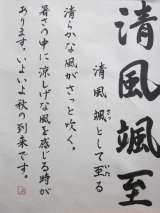 清風颯至
清風　颯として至る
清らかな風がさっと吹く。
暑さの中に涼しげな風を感じる時が
あります。いよいよ秋の到来です。